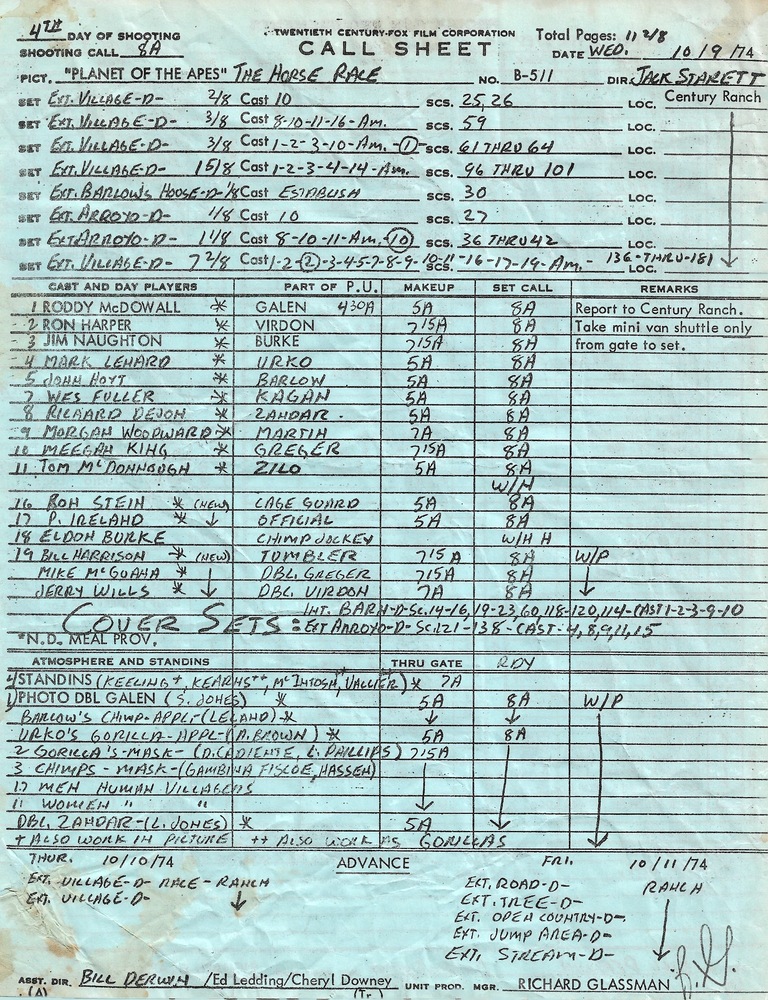 4TH DAY OF SHOOTING TWENTIETH CENTURY-FOX FILM CORPORATION Total Pages: 11 2/8
SHOOTING CALL 8A CALL SHEET DATE WED. 10/9/74
PICT. "PLANET OF THE APES" THE HORSE RACE NO. B-511 DIR. JACK STARETT
SET EXT. VILLAGE-D- 2/8 Cast 10 SCS. 25, 26 LOC. Century Ranch
SET EXT. VILLAGE-D- 3/8 Cast 8-10-11-16-Am. SCS. 59 LOC.
SET EXT. VILLAGE-D- 3/8 Cast 1-2-3-10-Am.-1 SCS. 61 THRU 64 LOC.
SET EXT. VILLAGE-D- 1 5/8 Cast 1-2-3-4-14-Am. SCS. 96 THRU 101 LOC.
SET EXT. BARLOW'S HOUSE-D- 1/8 Cast ESTABLISH SCS. 30 LOC.
SET EXT. ARROYO-D- 1/8 Cast 10 SCS. 27 LOC.
SET EXT. ARROYO-D- 1 1/8 Cast 8-10-11-Am. 10 SCS. 36 THRU 42 LOC.
SET EXT. VILLAGE-D- 7 2/8 Cast 1-2-2-3-4-5-7-8-9-10-11-16-17-19-Am- SCS. 136-THRU-181 LOC.
CAST AND DAY PLAYERS PART OF P.U. MAKEUP SET CALL REMARKS
1 RODDY McDOWALL * GALEN 430A 5A 8A Report to Century Ranch.
2 RON HARPER * VIRDON 715A 8A Take mini van shuttle only
3 JIM NAUGHTON * BURKE 715A 8A from gate to set.
4 MARK LENARD * URKO 5A 8A
5 JOHN HOYT * BARLOW 5A 8A
7 WES FULLER * KAGAN 5A 8A
8 RICHARD DEVON * ZANDAR 5A 8A
9 MORGAN WOODWARD * MARTIN 7A 8A
10 MEEGAN KING * GREGER 715A 8A
11 TOM McDONNOUGH * ZILO 5A 8A
W/H
16 RON STEIN * (NEW) CAGE GUARD 5A 8A
17 P. IRELAND * OFFICIAL 5A 8A
18 ELDON BURKE CHIMP JOCKEY W/H H
19 BILL HARRISON * (NEW) TUMBLER 715A 8A W/P
MIKE McGUAHA * DBL. GREGER 715A 8A
JERRY WILLS * DBL. VIRDON 7A 8A
INT. BARN-D-SC.14-16, 19-23, 60, 118-120, 114-CAST 1-2-3-9-10
COVER SETS: EXT ARROYO-D-SC.121-138-CAST-4,8,9,11,15
*N.D. MEAL PROV.
ATMOSPHERE AND STANDINS THRU GATE RDY
4 STANDINS (KEELING+, KEARNS++, McINTOSH, VALLIER) * 7A
1 PHOTO DBL GALEN (S. JONES) * 5A 8A W/P
BARLOW'S CHIMP-APPL-(LELAND) *
URKO'S GORILLA-APPL-(A. BROWN) * 5A 8A
2 GORILLA'S-MASK-(D. CADIENTE, L. PHILLIPS) 715A
3 CHIMPS-MASK-(GAMBINA FISLOE, HASSEN)
17 MEN HUMAN VILLAGERS
11 WOMEN " "
DBL. ZANDAR-(L. JONES) * 5A
+ ALSO WORK IN PICTURE ++ ALSO WORK AS GORILLAS
THUR. 10/10/74 ADVANCE FRI. 10/11/74
EXT. VILLAGE-D- RACE - RANCH EXT. ROAD-D- RANCH
EXT. VILLAGE-D- EXT. TREE-D-
EXT. OPEN COUNTRY-D-
EXT. JUMP AREA-D-
EXT. STREAM-D-
ASST. DIR. BILL DERWIN /Ed Ledding/Cheryl Downey UNIT PROD. MGR. RICHARD GLASSMAN
(A) (Tr.)